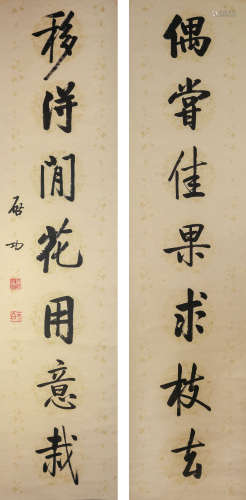 偶嘗佳果求枝去
移得閒花用意栽
啟功